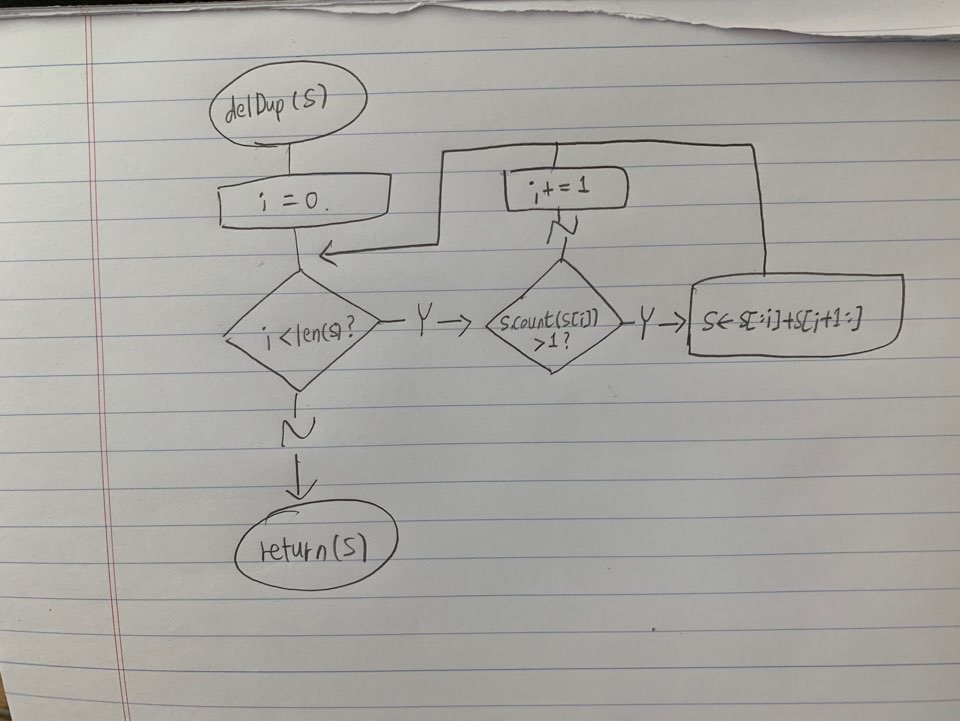 delDup(S)
i = 0.
i+= 1
N
i<len(s)?
Y
S.count(S[i])
>1?
Y
S← S[:i]+S[i+1:]
N
return(S)